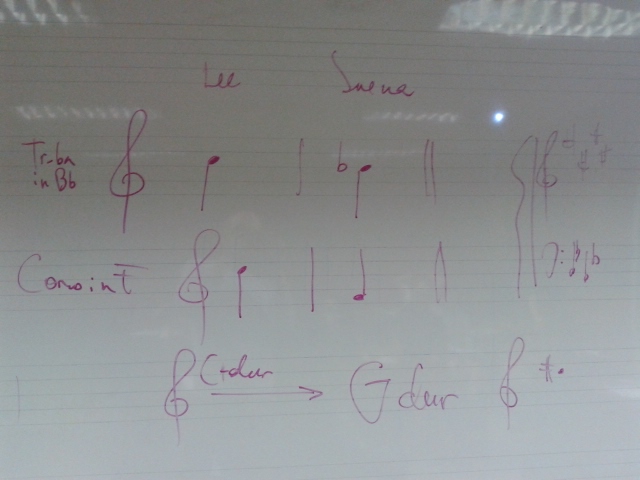 Lee Suena
Tr-ba
in Bb
♭
Corno in F
C-dur G dur